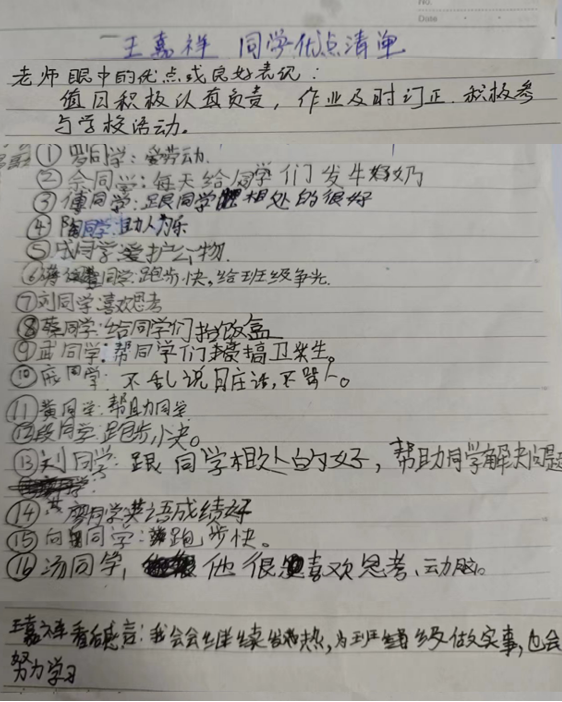 No.
Date
王嘉祥 同学优点清单
老师眼中的优点或良好表现:
值日积极认真负责,作业及时订正.积极参
与学校活动。
①罗同学:爱劳动.
②余同学:每天给同学们发牛奶
③傅同学:跟同学相处的很好
④陶同学:助人为乐
⑤成同学:爱护公物.
⑥同学:跑步快。给班级争光.
⑦刘同学:喜欢思考
⑧蔡同学:给同学们抬饭盒
⑨武同学:帮同学们搞卫生。
⑩同学:不乱说脏话,不骂人。
⑪黄同学:帮助同学
⑫段同学:跑步快。
⑬刘同学:跟同学相处的好,帮助同学解决问题
⑭廖同学英语成绩好
⑮向同学:跑步快。
⑯汤同学,他很喜欢思考、动脑。
王嘉祥看后感言:我会继续发热,为班级做实事,也会
努力学习